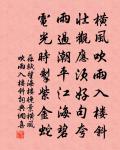 橫風吹雨入樓斜
壯觀應須好句誇
雨過潮平江海碧
電光時掣紫金蛇
蘇軾望海樓晚景橫風
吹雨入樓斜詞典網